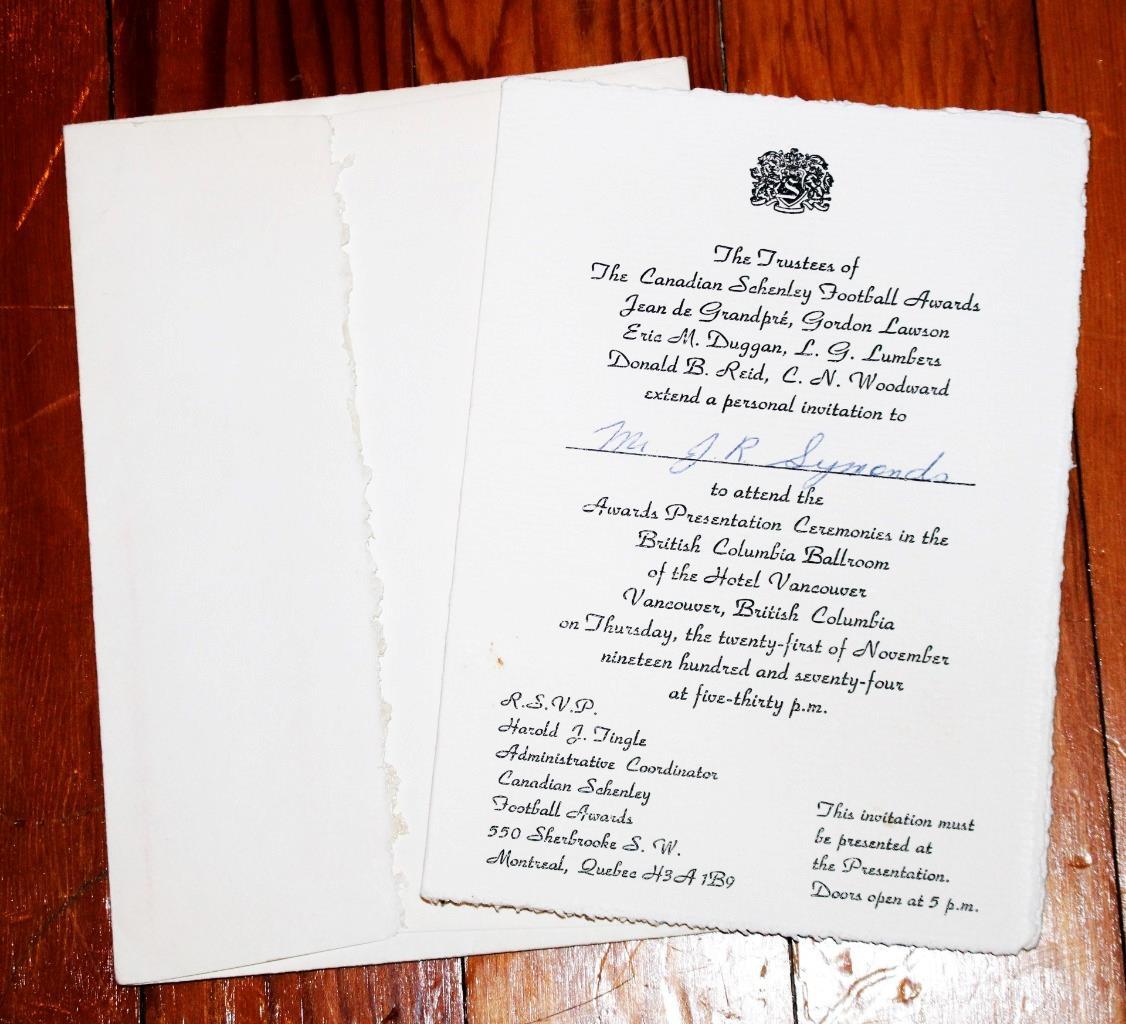 S
The Trustees of
The Canadian Schenley Football Awards
Jean de Grandpré, Gordon Lawson
Eric M. Duggan, L. G. Lumbers
Donald B. Reid, C. N. Woodward
extend a personal invitation to
Mr J. R Symonds
to attend the
Awards Presentation Ceremonies in the
British Columbia Ballroom
of the Hotel Vancouver
Vancouver, British Columbia
on Thursday, the twenty-first of November
nineteen hundred and seventy-four
at five-thirty p.m.
R.S.V.P.
Harold J. Tingle
Administrative Coordinator
Canadian Schenley
Football Awards
550 Sherbrooke S. W.
Montreal, Quebec H3A 1B9
This invitation must
be presented at
the Presentation.
Doors open at 5 p.m.